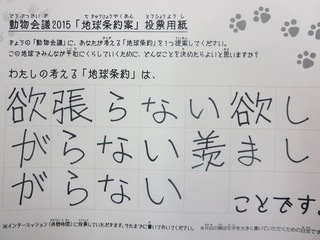 動物会議2015「地球条約案」投票用紙
きょうの「動物会議」に、あなたが考える「地球条約」を1つ提案してください。
この地球でみんなが平和にくらしていくために、どんなことを決めたらよいと思いますか?
わたしの考える「地球条約」は、
欲張らない欲し
がらない羨まし
がらない
ことです。